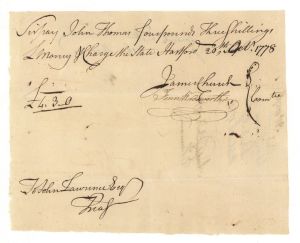 Sir Pay John Thomas four pounds Three Shillings
L Money & Charge the State Hartford 20th 1778
£4.3.0
James Church
Comtee
To John Lawrence Esqr
Treasr